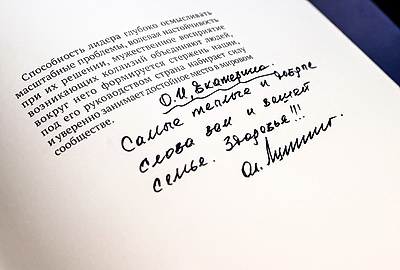 Способность лидера глубоко осмысливать
масштабные проблемы, волевая настойчивость
при их решении, мужественное восприятие
возникающих коллизий объединяют людей,
вокруг него формируется стержень нации,
под его руководством страна набирает силу
и уверенно занимает достойное место в мировом
сообществе.
О.И. Екатерина.
Самые теплые и добрые
слова вам и вашей
семье. Здоровья!!!